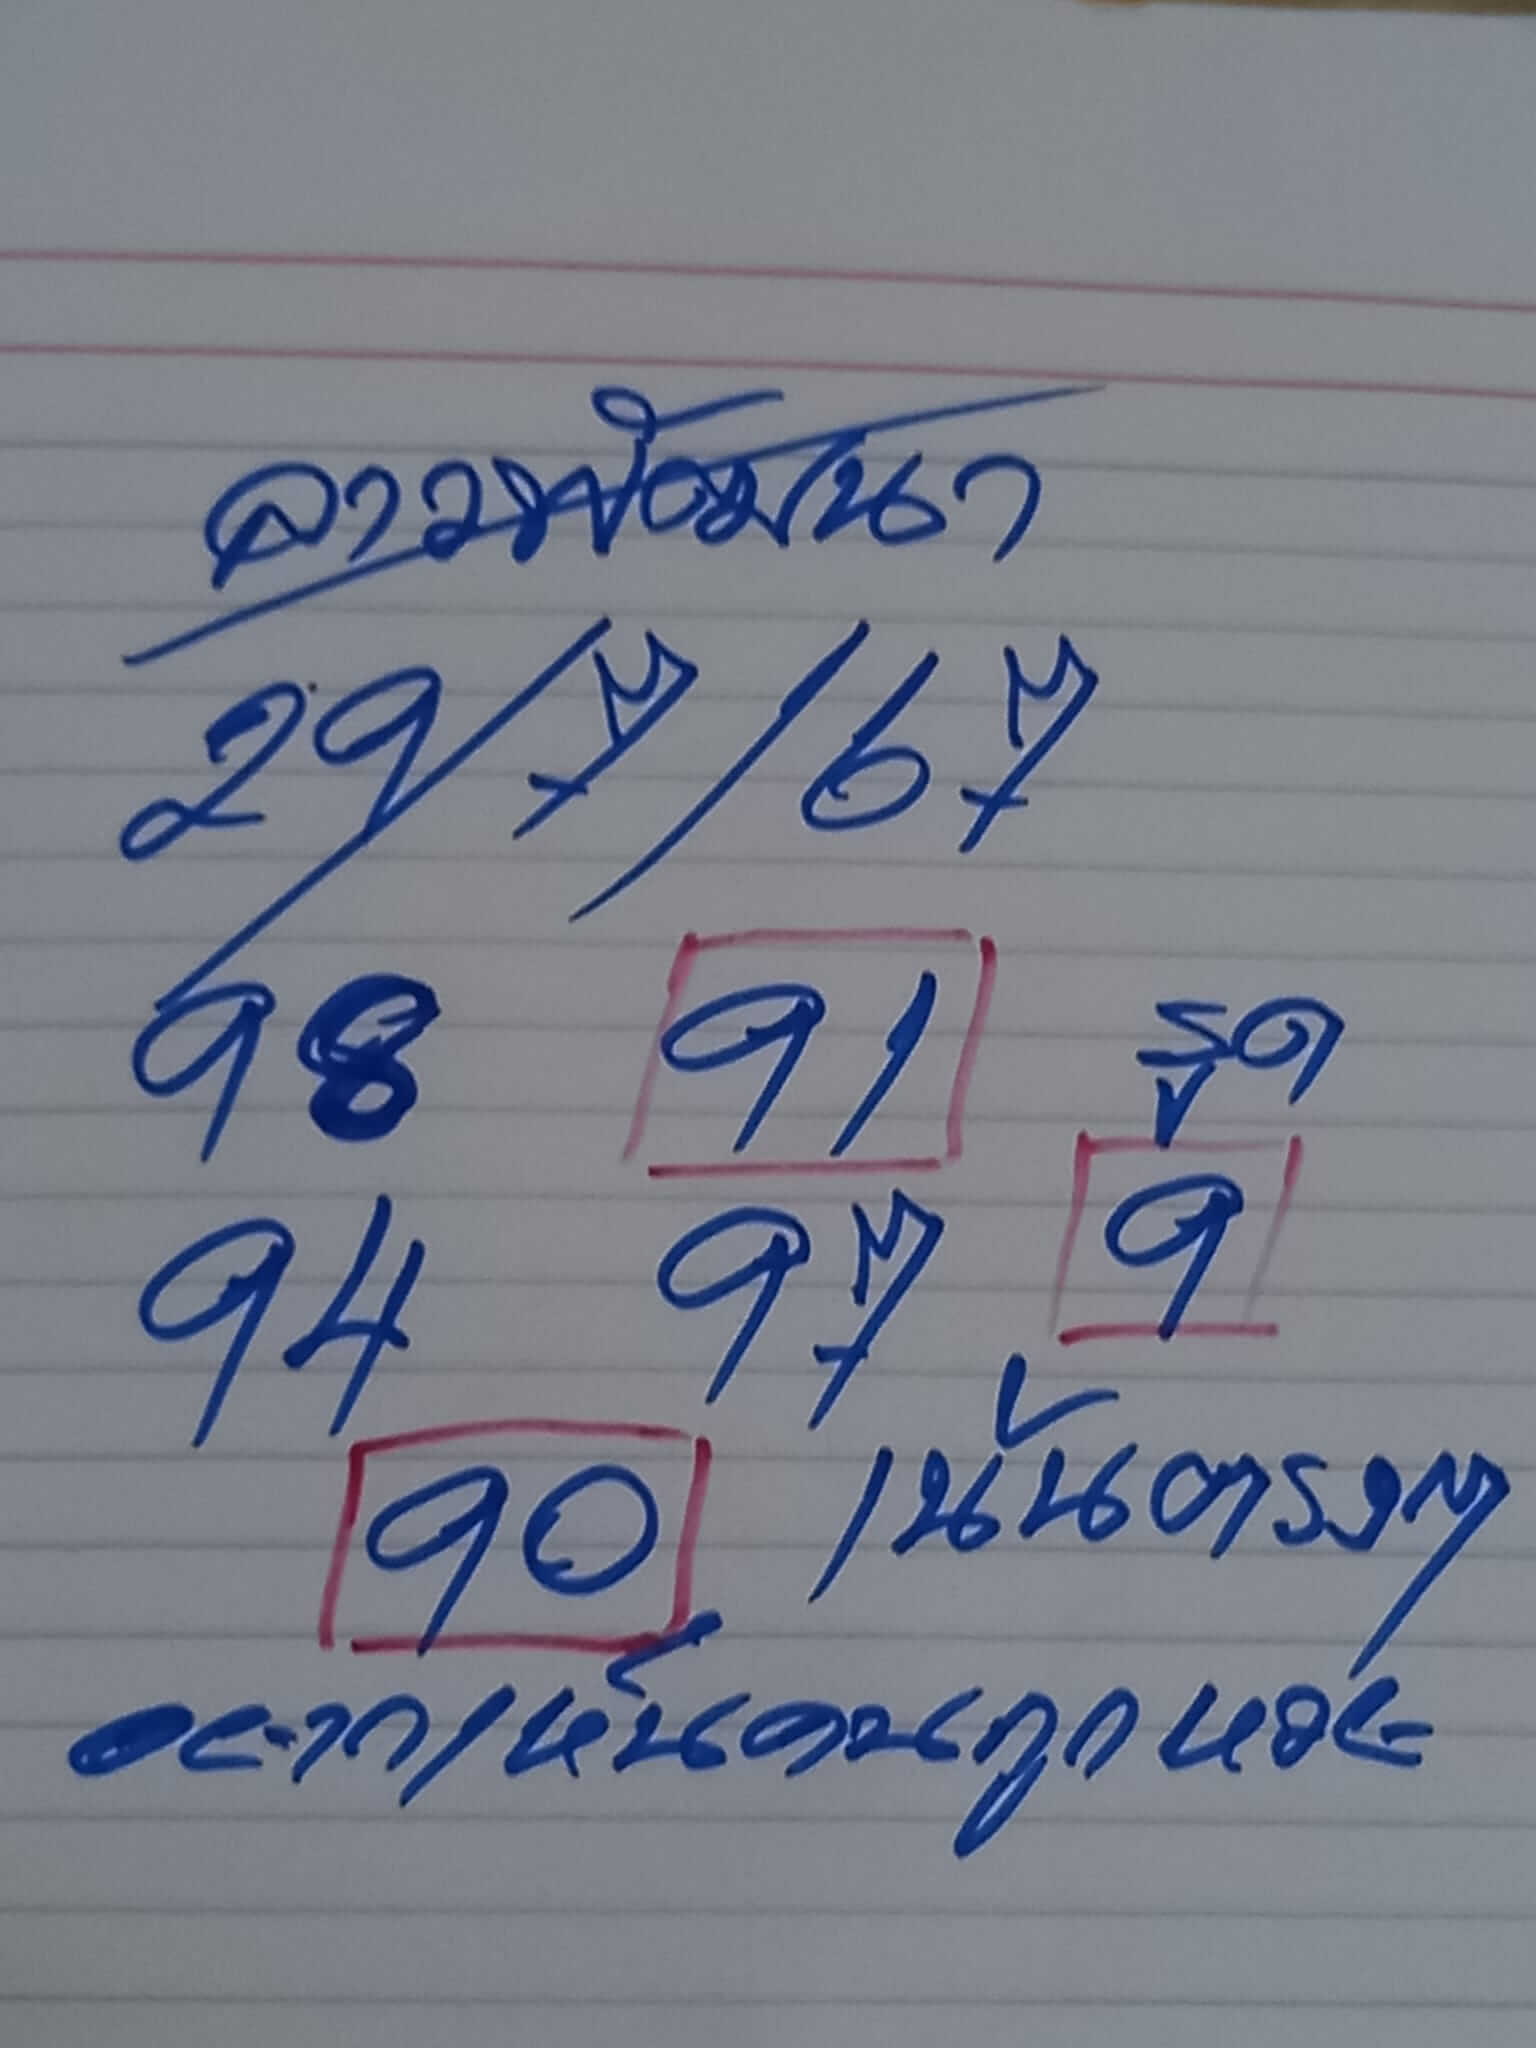 ลาวพัฒนา
29/7/67
98 91 รูด
9
94 97
90 เน้นตรงๆ
อยากเห็นคนถูกหวย